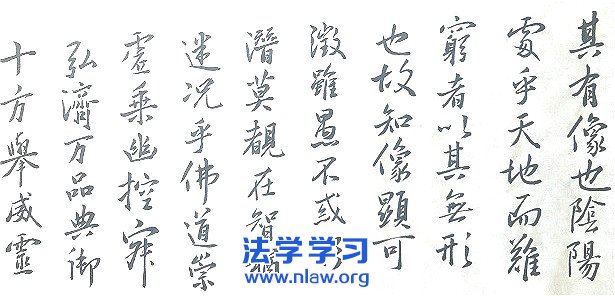 其有像也陰陽
處乎天地而難
窮者以其無形
也故知像顯可
徵雖愚不惑
潛莫覩在智
迷况乎佛道崇
虛乗幽控寂
弘濟万品典御
十方舉威靈
法学学习
www.nlaw.org